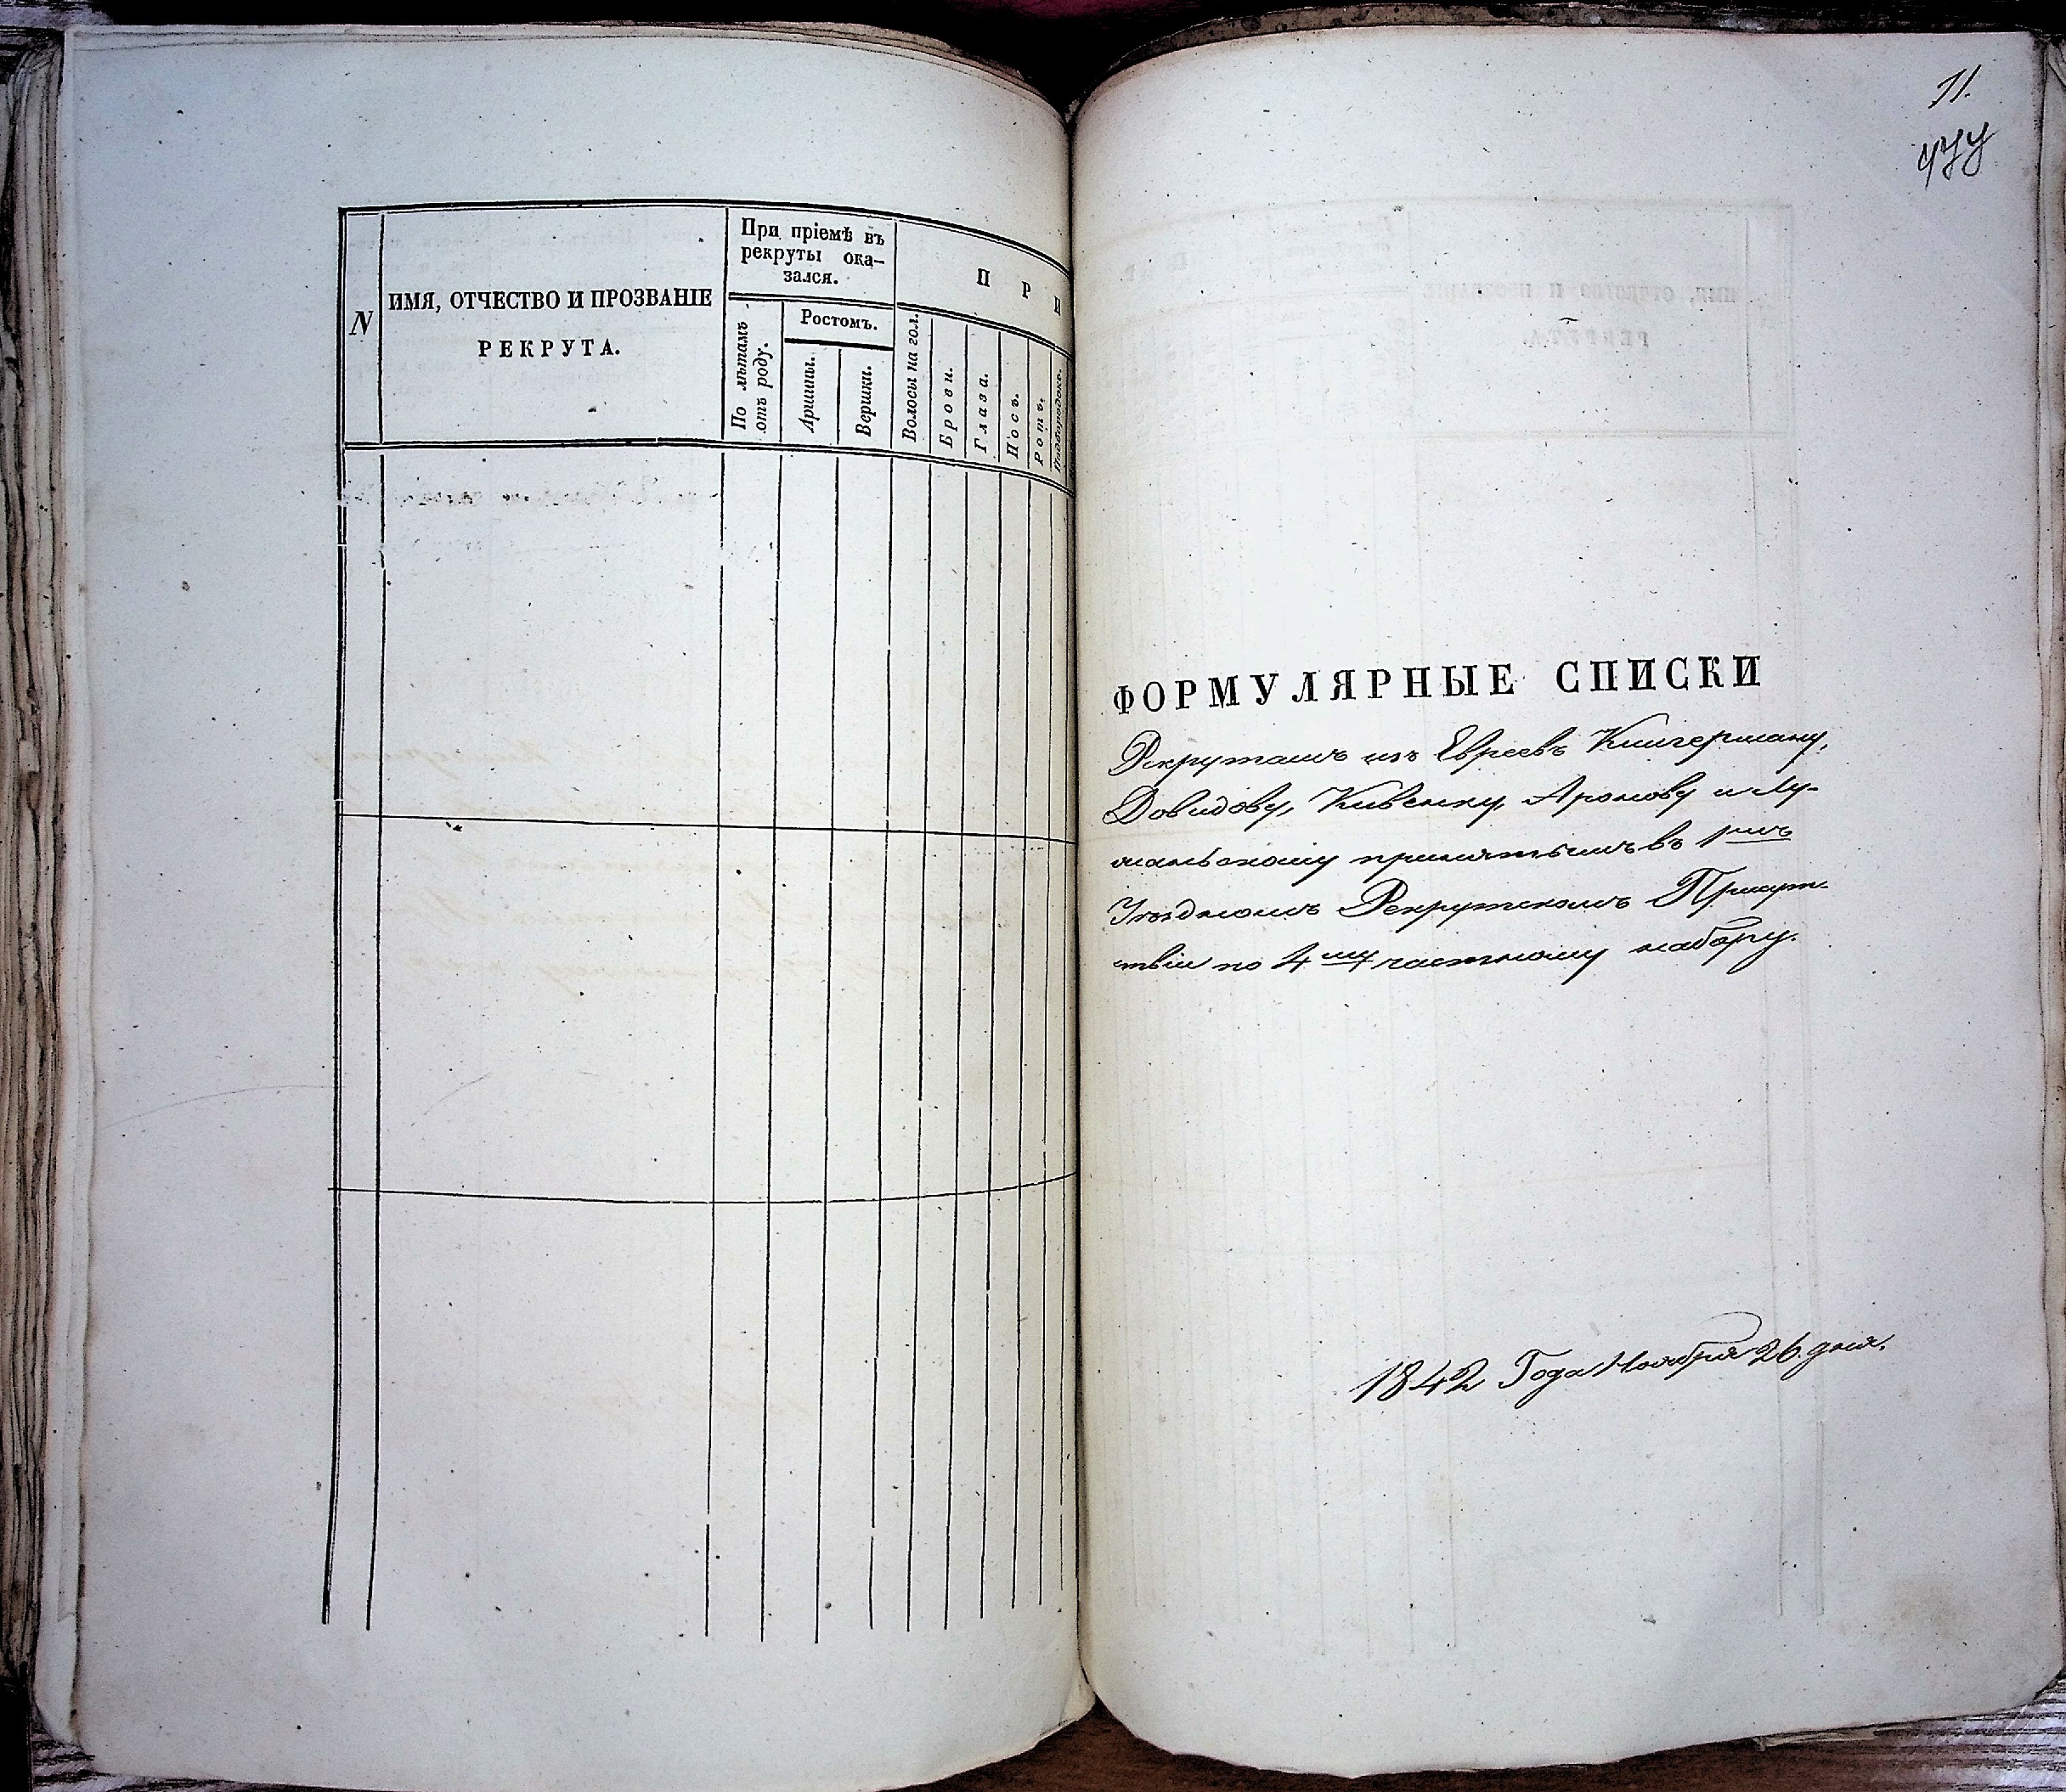 N
ИМЯ, ОТЧЕСТВО И ПРОЗВАНІЕ
РЕКРУТА.
При пріемѣ въ
рекруты ока-
зался.
По лѣтамъ
отъ роду.
Ростомъ.
Аршины.
Вершки.
П Р И
Волосы на гол.
Брови.
Глаза.
Носъ.
Ротъ.
Подбородокъ.
11.
ФОРМУЛЯРНЫЕ СПИСКИ
Рекрутамъ изъ Евреевъ Кингерману,
Довидову, Кивенку, Аронову и Лу-
жанскому принятымъ въ 1мъ
Уѣздномъ Рекрутскомъ Присут-
ствіи по 4му частному набору.
1842 Года Ноября 26 дня.